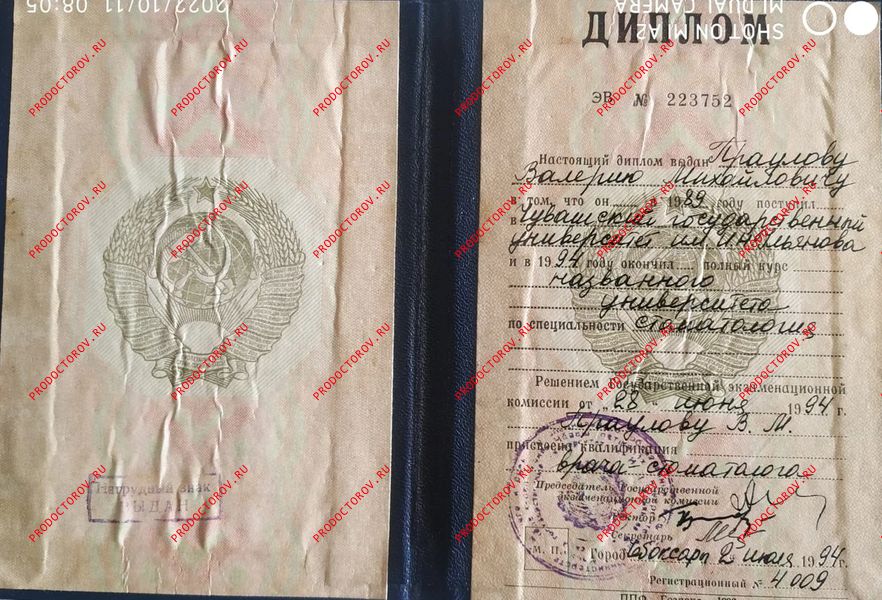 2023/10/11 08:05
SHOT ON MI A2
MI DUAL CAMERA
PRODOCTOROV.RU
Нагрудный знак
ВЫДАН
ДИПЛОМ
ЭВ № 223752
Настоящий диплом выдан Праулову
Валерию Михайловичу
в том, что он в 1989 году поступил
в Чувашский государственный
университет им. И.Н. Ульянова
и в 1994 году окончил полный курс
названного
университета
по специальности стоматология
Решением Государственной экзаменационной
комиссии от „28" июня 1994 г.
Праулову В. М.
присвоена квалификация
врача-стоматолога
Председатель Государственной
экзаменационной комиссии
Ректор
Секретарь
М. П. Город Чебоксары 2 июля 1994г.
Регистрационный № 4009